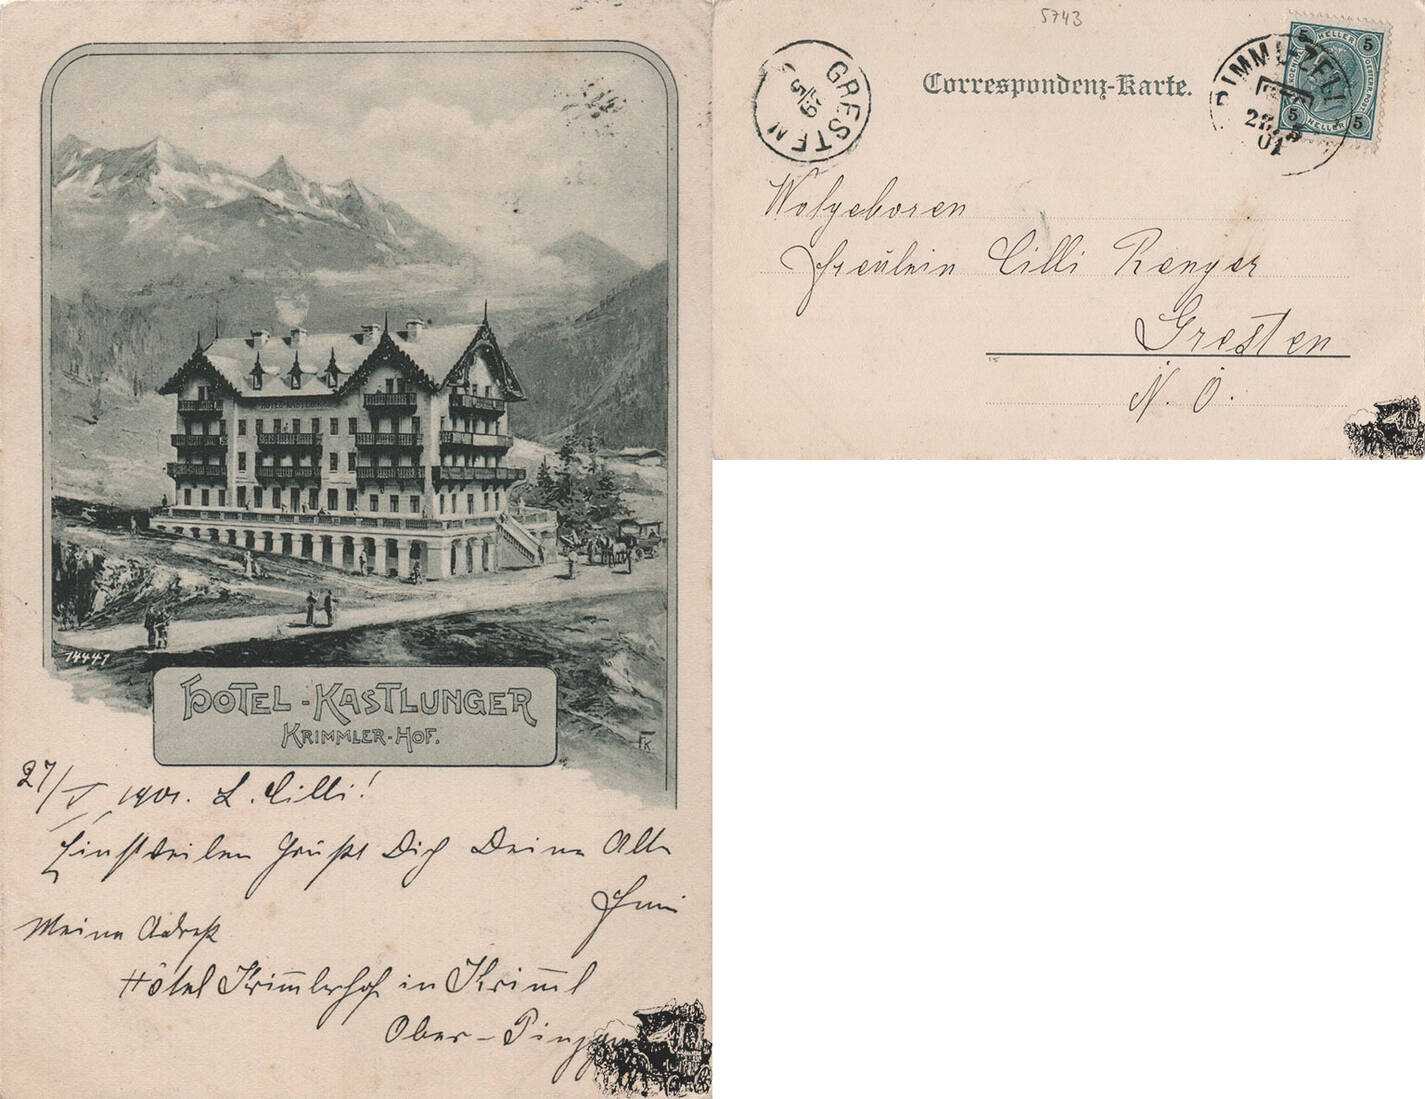 14441
HOTEL-KASTLUNGER
HOTEL-KASTLUNGER
KRIMMLER-HOF.
FK
27/V 1901. L. Cilli!
Einstweilen Grüßt Dich Deine Alte
Meine Adreß
Hôtel Krim̅lerhof in Krim̅l
Ober-Pinzgau
5743
Correspondenz-Karte.
GRESTEN
29/5
RIMML-ZELL
28.5
01
5 HELLER 5
5 HELLER 5
Wolgeboren
Freulein Cilli Renger
Gresten
15
N. Ö.